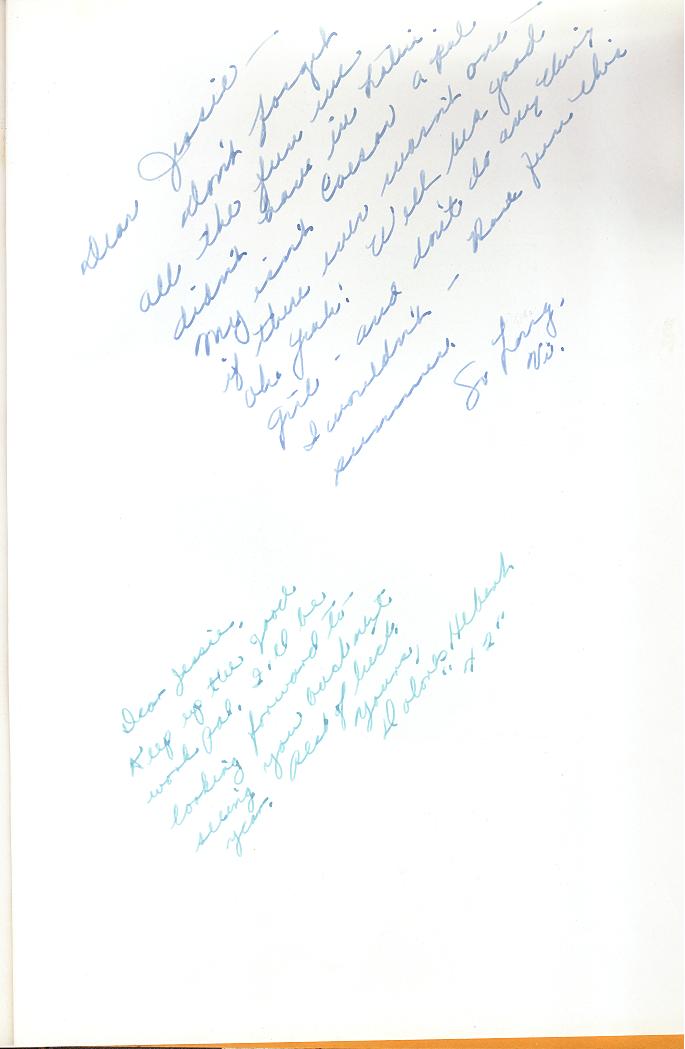 Dear Jessie —
Don't forget
all the fun we
didn't have in Latin.
My isn't Caesar a pal
if there ever warn't one —
oh. yeah! Well be a good
girl - and don't do anything
I wouldn't — Have fun this
summer.
So Long.
Vi.
Dear Jessie,
Keep up the good
work pal. I'll be
looking forward to
seeing you back next
year. Best of luck
Yours,
Dolores Hebert
"42"